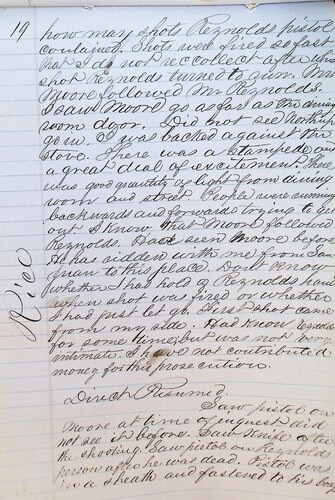 19
how many shots Reynolds pistol
contained. Shots were fired so fast
that I do not reccollect after which
shot Reynolds turned to run. Mr
Moore followed Mr Reynolds.
I saw Moore go as far as the dining
room door. Did not see Northrup
go in. I was backed against the
stove. There was a stampede and
a great deal of excitement. There
was good quantity of light from dining
room and street. People were running
backwards and forwards trying to get
out. I know that Moore followed
Reynolds. Had seen Moore before
He has ridden with me from San
Juan to this place. Dont know
whether I had hold of Reynolds hand
when shot was fired or whether
I had just let go. First shot came
from my side. Had known
for some time but was not very
intimate. I have not contributed
money for this prosecution.
Rice
Direct Resumed.
Saw pistol on
Moore at time of inquest did
not see it before. Saw Knife after
the shooting. Saw pistol on Reynolds
person after he was dead. Pistol was
in a sheath and fastened to his body